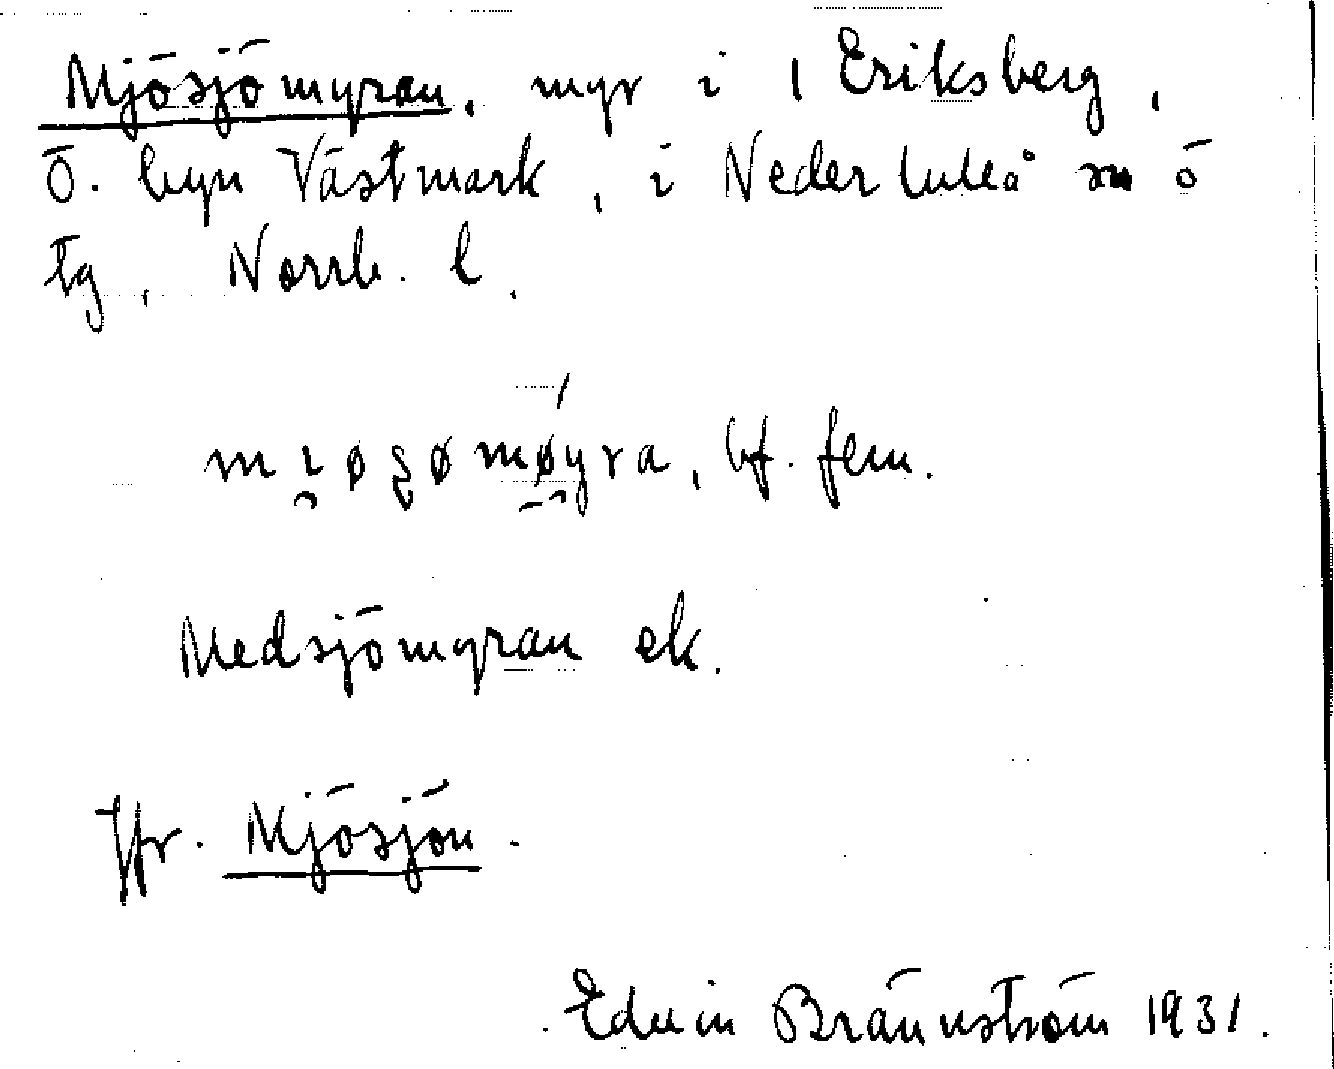 Mjösjömyran, myr i Eriksberg,
ö. byn Västmark, i Nederluleå sn o
tg, Norrb. l.
bf. fem.
Medsjömyran ek.
Jfr. Mjösjön.
Edvin Brännström 1931.